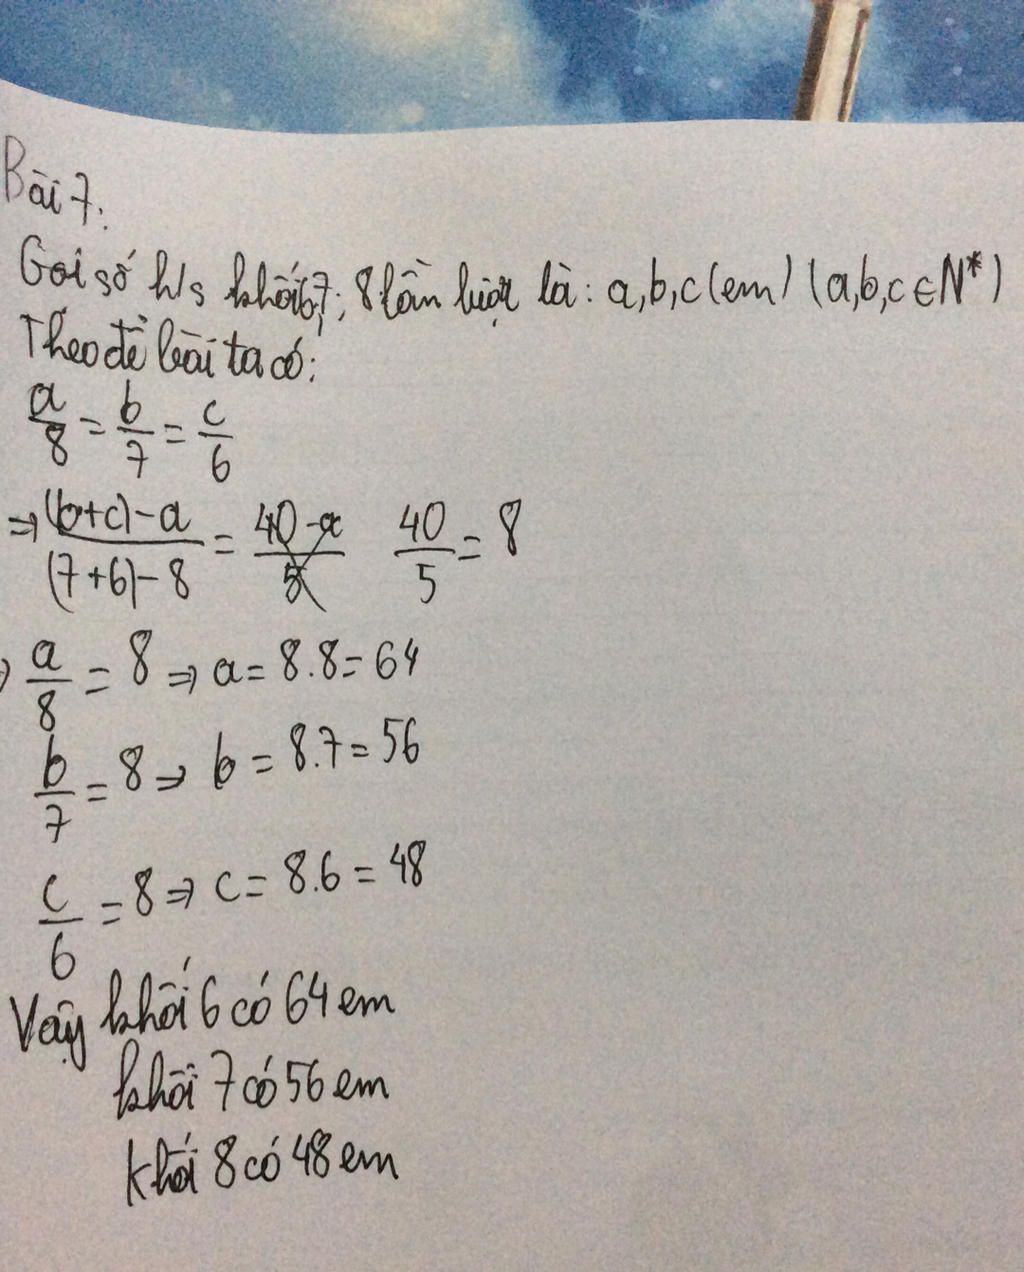 Bài 7:
Gọi số h/s khối 6,7; 8 lần lượt là: a,b,c (em) (a,b,c ∈ N*)
Theo đề bài ta có:
a/8 = b/7 = c/6
⇒ (b+c)-a/(7+6)-8 = 40-a/5 40/5 = 8
⇒ a/8 = 8 ⇒ a = 8.8 = 64
b/7 = 8 ⇒ b = 8.7 = 56
c/6 = 8 ⇒ c = 8.6 = 48
Vậy khối 6 có 64 em
khối 7 có 56 em
khối 8 có 48 em